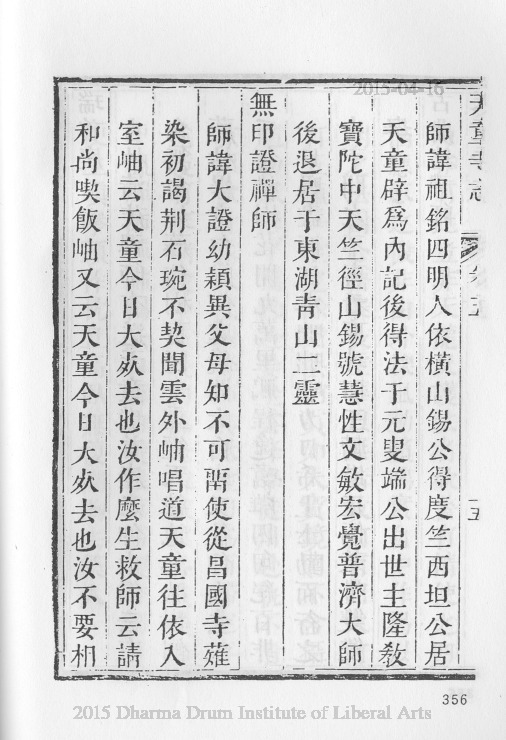 2015-04-16
天童寺志
卷
五
師諱祖銘四明人依橫山錫公得度竺西坦公居
天童辟爲內記後得法于元叟端公出世主隆教
寶陀中天竺徑山錫號慧性文敏宏覺普濟大師
後退居于東湖青山二靈
無印證禪師
師諱大證幼穎異父母知不可畱使從昌國寺薙
染初謁荆石琬不契聞雲外岫唱道天童往依入
室岫云天童今日大欬去也汝作麼生救師云請
和尚喫飯岫又云天童今日大欬去也汝不要相
356
2015 Dharma Drum Institute of Liberal Arts